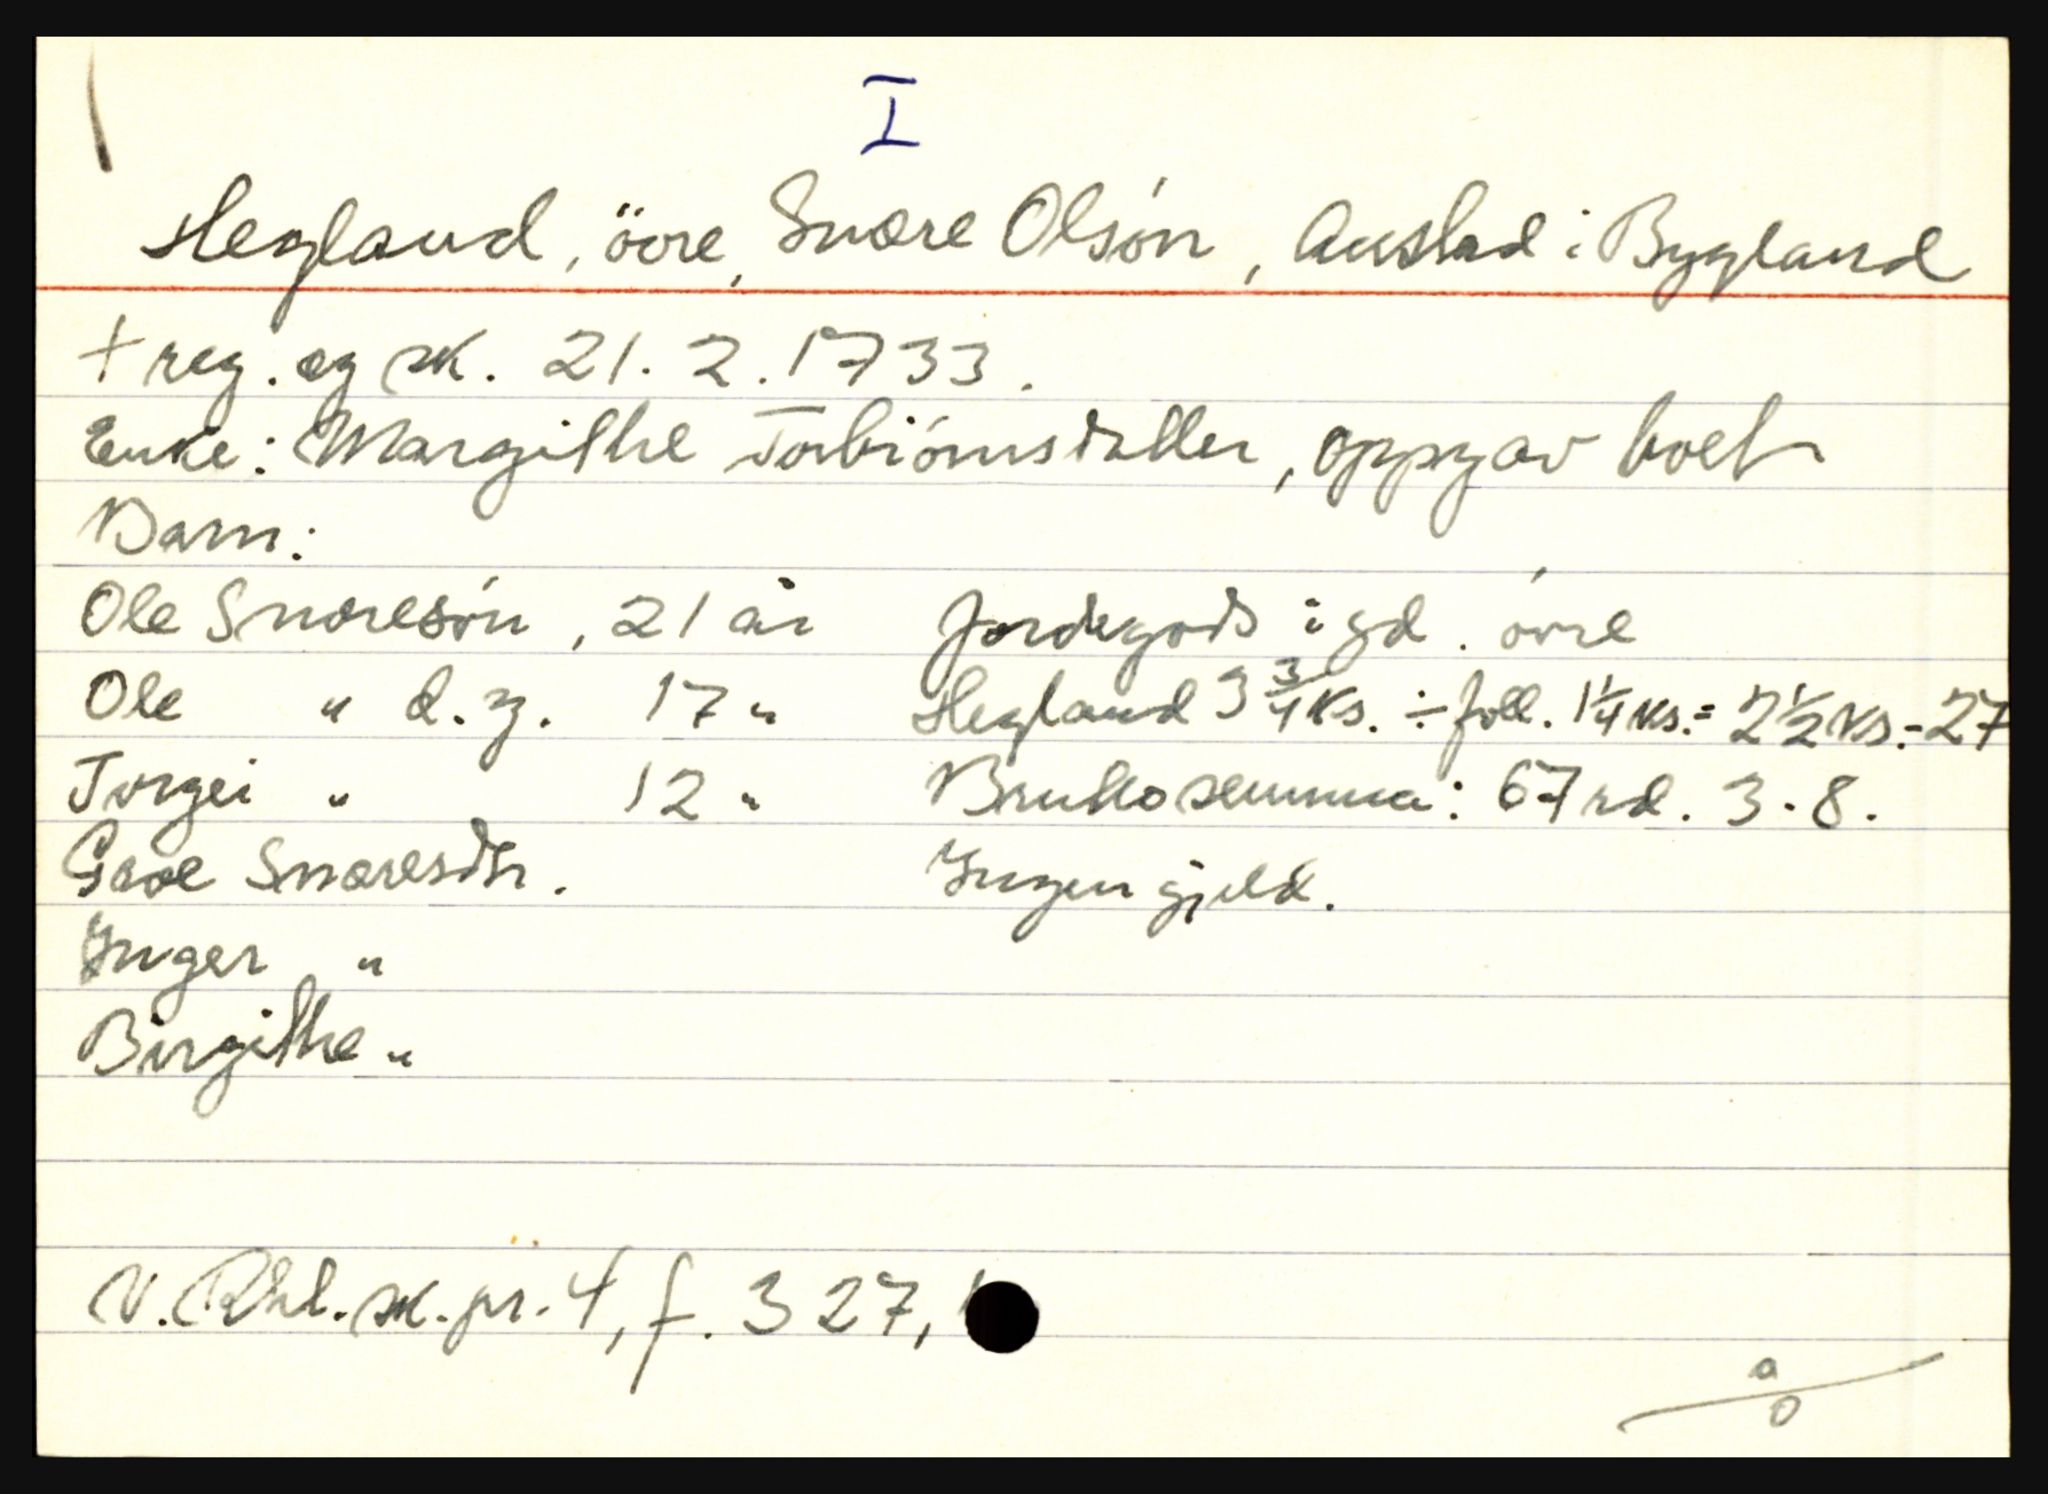 I
Hegland, övre, Snære Olsón, Austad i Bygland
+ reg. og sk. 21. 2. 1733.
Enke: Margithe Torbiórnsdatter, oppgav boet
Barn:
Ole Snæresón, 21 år
Ole " d. y. 17 "
Torgei " 12 "
Gave Snæresdtr.
Inger "
Birgithe "
Jordegods i gd. óvre
Hegland 3 3/4 ks. ÷ foll. 1 1/4 ks. = 2 1/2 ks. - 27
Bruttosumma: 67 rd. 3 - 8.
Ingen gjeld.
V. Rbl. sk. pr. 4, f. 327,
a/o